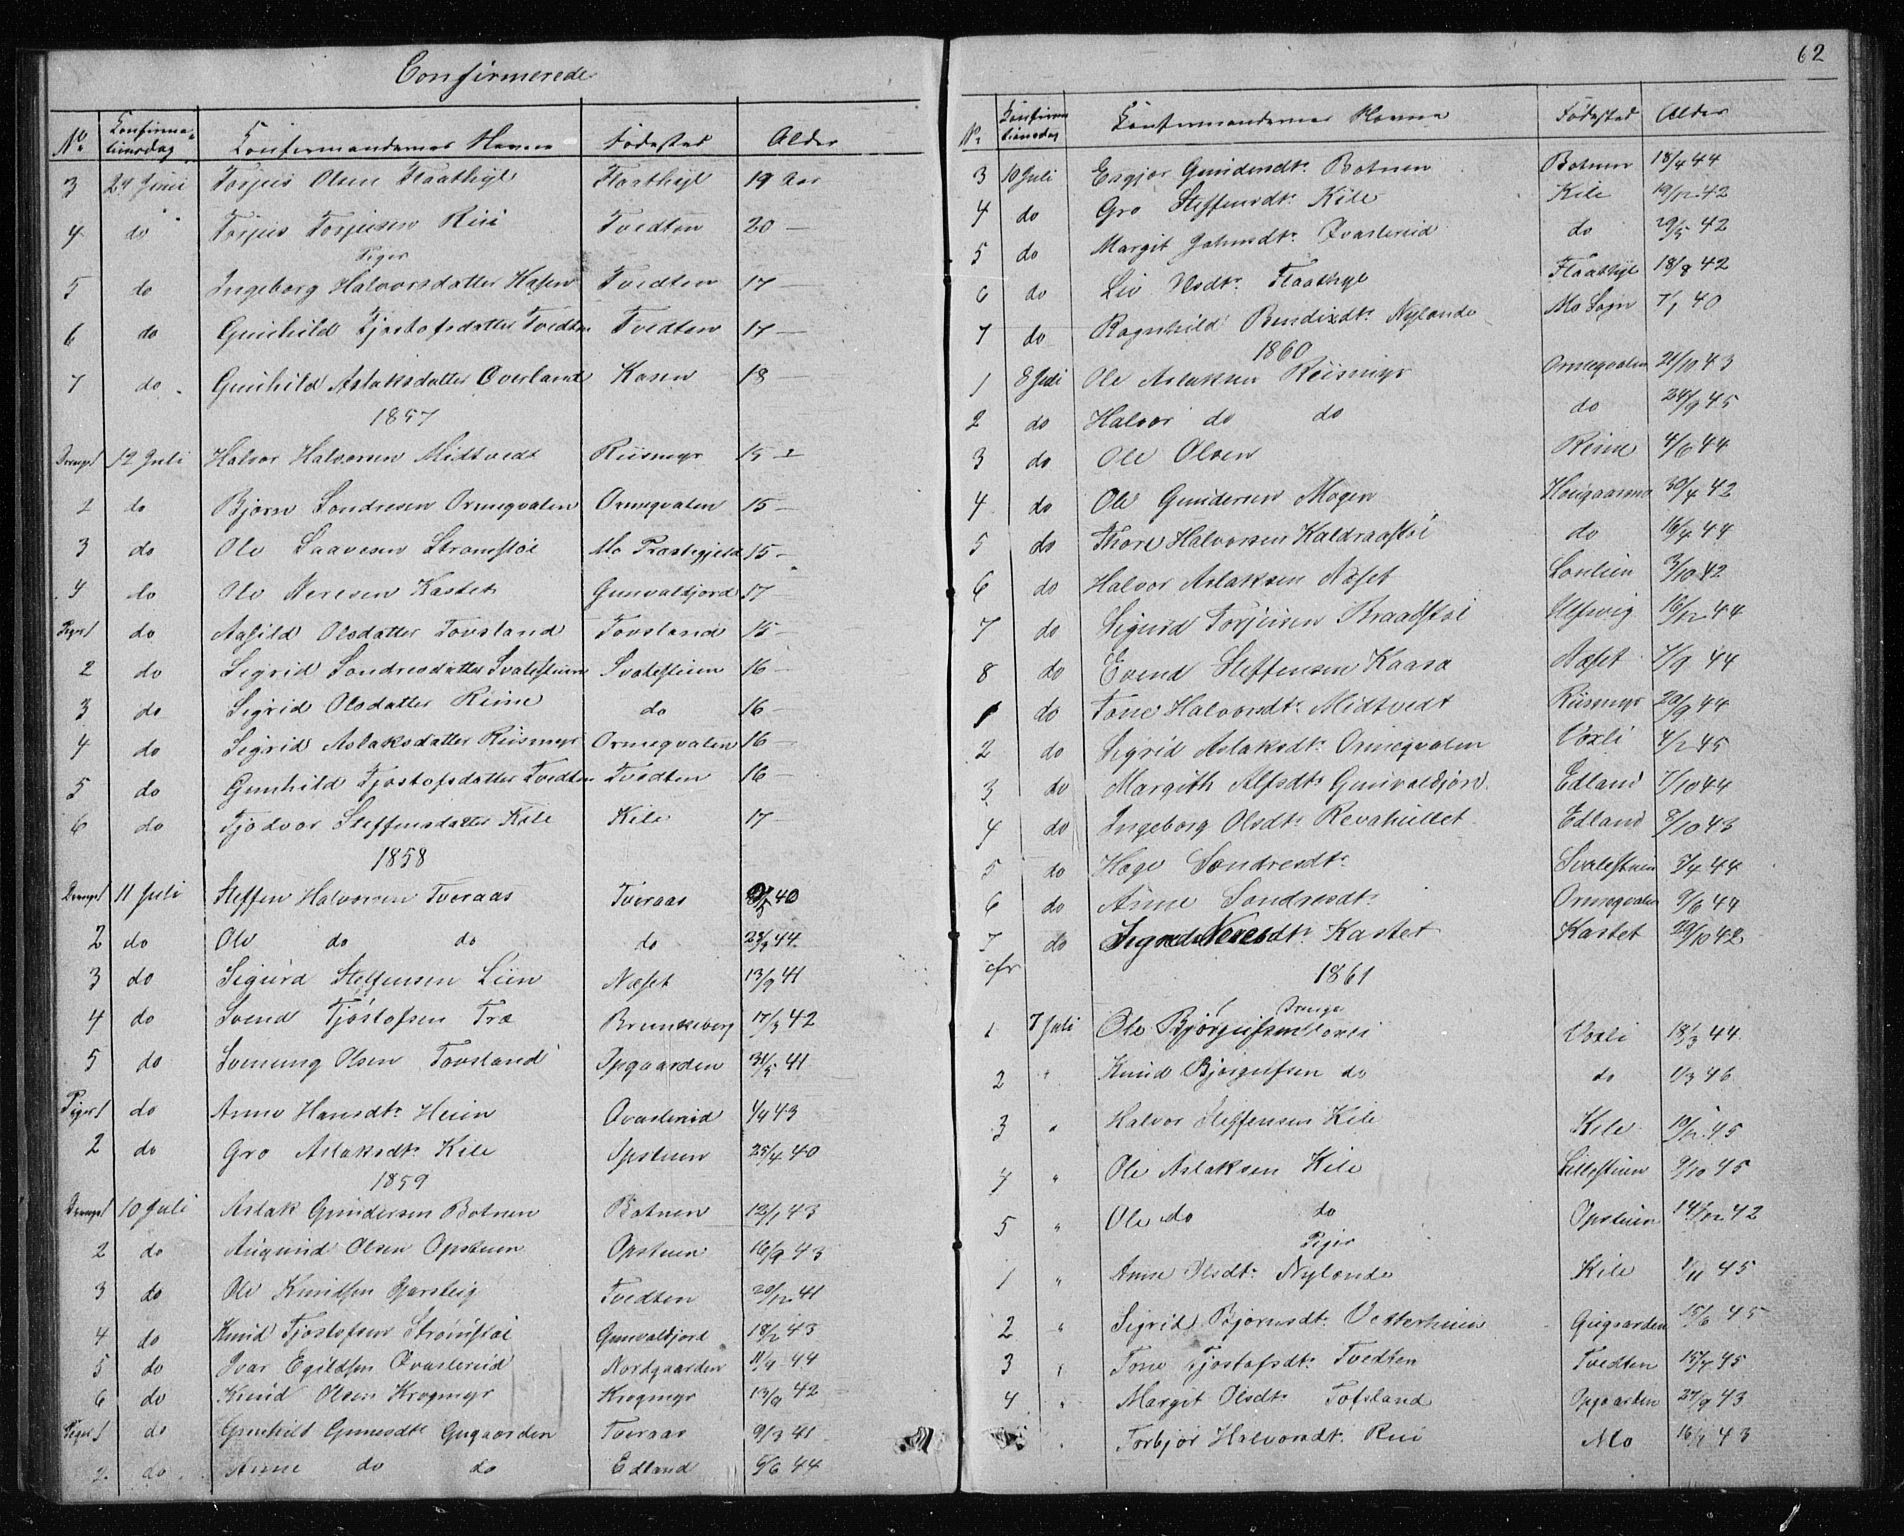 Confirmerede
No Confirmationsdag Confirmandernes Navne Fødested Alder
3 24 Juni Torjus Olsen Flaathyl Flaathyl 19 Aar
4 do Torjus Torjusen Rui Tvedten 20 —
Piger
5 do Ingeborg Halvorsdatter Tvedten 17 —
6 do Gunhild Tjostofsdatter Tvedten Tvedten 17 —
7 do Gunhild Aslaksdatter Overland Kasen 18 —
1857
Drenge 1 12 Juli Halvor Halvorsen Midtvedt Riismyr 15 —
2 do Bjørn Sondresen Ormegvalen Ormegvalen 15 —
3 do Ole Saavesen Strømstøl Mo Præstegjeld 15 —
4 do Ole Neresen Kastet Gunvaldjord 17 —
Piger 1 do Aasild Olsdatter Tovsland Tovsland 15 —
2 do Sigrid Sondresdatter Svalestuen Svalestuen 16 —
3 do Sigrid Olsdatter Rime do 16 —
4 do Sigrid Aslaksdatter Riismyr Ormegvalen 16 —
5 do Gunhild Tjostofsdatter Tvedten Tvedten 16 —
6 do Tjodvor Steffensdatter Kile Kile 17
1858
Drenge 1 11 Juli Steffen Halvorsen Tveraas Tveraas 40
2 do Ole do do do 44
3 do Sigurd Steffensen Lien Næset 13/9 41
4 do Svend Tjøstofsen Træ Brunkeberg 17/3 42
5 do Svenung Olsen Tovsland Opgaarden 31/5 41
Piger 1 do Anne Hansdtr Heien Øvasterud 43
2 do Gro Aslaksdtr Kile Opstuen 25/4 40
1859
Drenge 1 10 Juli Aslak Gundersen Botnen Botnen 12/1 43
2 do Augund Olsen Opstuen Opstuen 16/9 43
3 do Ole Knudsen Tvedten 20/12 41
4 do Knud Tjostofsen Strømstøl Gunvaldjord 18/2 43
5 do Ivar Egildsen Øvasterud Nordgaarden 11/4 44
6 do Knud Olsen Krogmyr Krogmyr 13/9 42
Piger 1 do Gunhild Gunnesdtr Gugaarden Tveraas 9/3 41
2 do Anne do do Edland 5/6 44
62
No Confirmationsdag Confirmandernes Navne Fødested Alder
3 10 Juli Gundersdtr Botnen Botnen 18/4 44
4 do Gro Steffensdtr Kile Kile 19/12 42
5 do Margit Johnsdtr Øvasterud do 29/5 42
6 do Liv Olsdtr Flaathyl Flaathyl 18/8 42
7 do Ragnhild Bendixdtr Nylande Mo Sogn 7/1 40
1860
1 8 Juli Ole Aslaksen Riismyr Ormegvalen 21/10 43
2 do Halvor do do do 24/9 45
3 do Ole Olsen Rime 4/6 44
4 do Ole Gundersen Mogen 30/4 42
5 do Thore Halvorsen Kaldraastøl do 16/4 44
6 do Halvor Aslaksen Næset Lonlien 3/10 42
7 do Sigurd Torjusen Braadstøl 16/12 44
8 do Evend Steffensen Kaasa Næset 7/9 44
1 do Tone Halvorsdtr Midtvedt Riismyr 20/9 44
2 do Sigrid Aslaksdtr Ormegvalen Voxli 4/2 45
3 do Margith Alfsdtr Gunvaldjord Edland 7/10 44
4 do Ingeborg Olsdtr Revahullet Edland 8/10 43
5 do Hæge Sondresdtr Svalestuen 5/4 44
6 do Anne Sondresdtr Ormegvalen 9/6 44
7 do Signe Neresdtr Kastet Kastet 29/10 42
1861
Drenge
1 7 Juli Ole Bjørgufsen Voxli Voxli 18/3 44
2 " Knud Bjørgufsen do do 1/3 46
3 " Halvor Steffensen Kile Kile 19/12 45
4 " Ole Aslaksen Kile Lillestuen 9/10 45
5 " Ole do do Opstuen 14/12 42
Piger
1 " Anne Olsdtr Nylande Kile 45
2 " Sigrid Bjørnsdtr Vetterhuus Gugaarden 15/6 45
3 " Tone Tjostofsdtr Tvedten Tvedten 15/4 45
4 " Margit Olsdtr Tofsland Opgaarden 27/9 43
" Torbjør Halvorsdtr Rui Mo 43